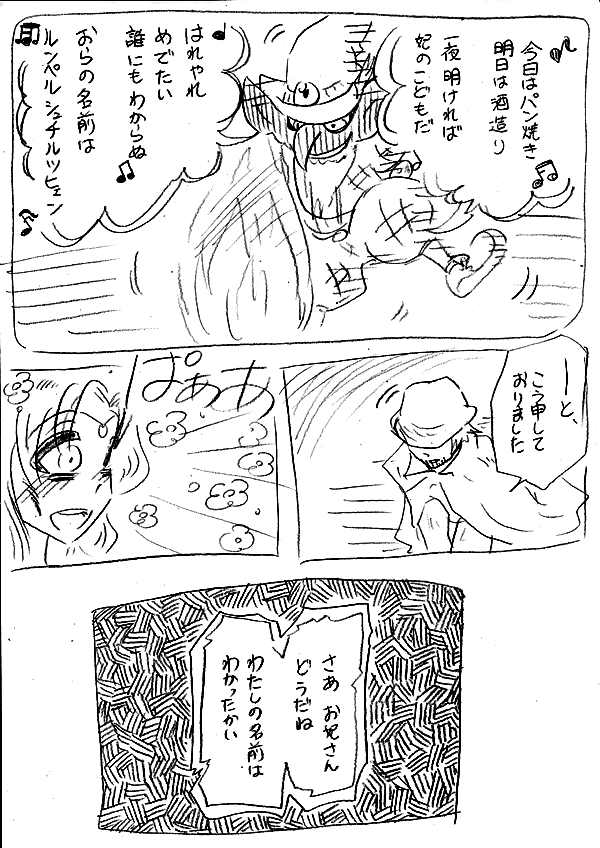 今日はパン焼き
明日は酒造り
一夜明ければ
妃のこどもだ
はれやれ
めでたい
誰にもわからぬ
おらの名前は
ルンペルシュチルツヒェン
ーと、
こう申して
おりました
ぱああ
さあ お妃さん
どうだね
わたしの名前は
わかったかい